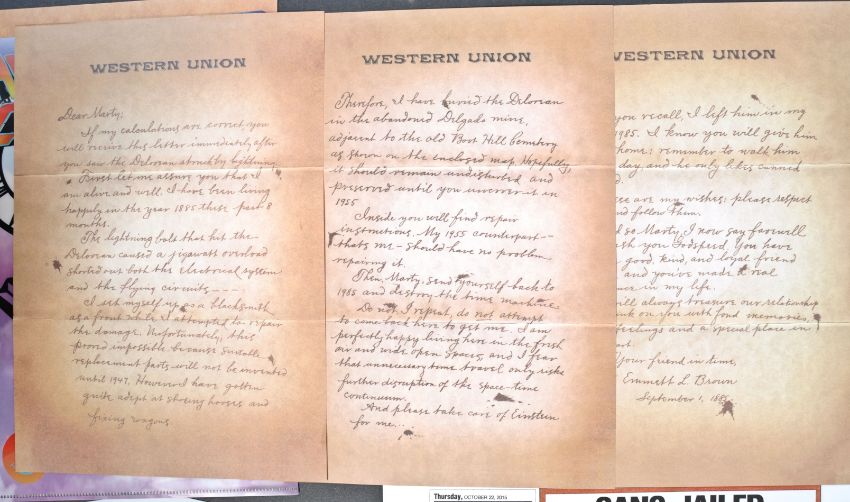 WESTERN UNION
Dear Marty;
If my calculations are correct, you
will receive this letter immediately after
you saw the Delorian struck by lightning.
First let me assure you that I
am alive and well. I have been living
happily in the year 1885 these past 8
months.
The lightning bolt that hit the
Delorian caused a jigawatt overload
shorted out both the electrical system
and the flying circuits----
I set myself up as a blacksmith
as a front while I attempted to repair
the damage. Unfortunately, this
proved impossible because suitable
replacement parts will not be invented
until 1947. However I have gotten
quite adept at shoeing horses and
fixing wagons
WESTERN UNION
Therefore, I have buried the Delorian
in the abandoned Delgado mine,
adjacent to the old Boot Hill Cemetery
as shown on the enclosed map. Hopefully,
it should remain undisturbed and
preserved until you uncover it in
1955
Inside you will find repair
instructions. My 1955 counterpart--
thats me - should have no problem
repairing it.
Then, Marty, send yourself back to
1985 and destroy the time machine
Do not, I repeat, do not attempt
to come back here to get me. I am
perfectly happy living here in the fresh
air and wide open spaces, and I fear
that unnecessary time travel only risks
further disruption of the space-time
continuum.
And please take care of Einstein
for me...
WESTERN UNION
you recall, I left him in my
1985. I know you will give him
home: remember to walk him
day and he only likes canned
d.
ese are my wishes: please respect
nd follow them.
d so Marty, I now say farewell
sh you Godspeed. You have
good, kind, and loyal friend
and you've made a real
nce in my life.
ill always treasure our relationship
nk on you with fond memories,
feelings and a special place in
art.
Your friend in time,
Emmett L. Brown
September 1, 1885
Thursday, OCTOBER 22, 2015
GANG JAILED